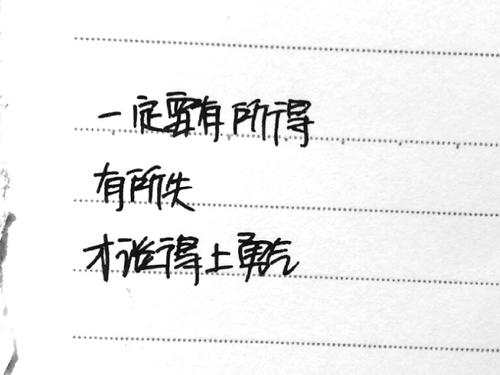 一定要有所得
有所失
才谈得上勇气